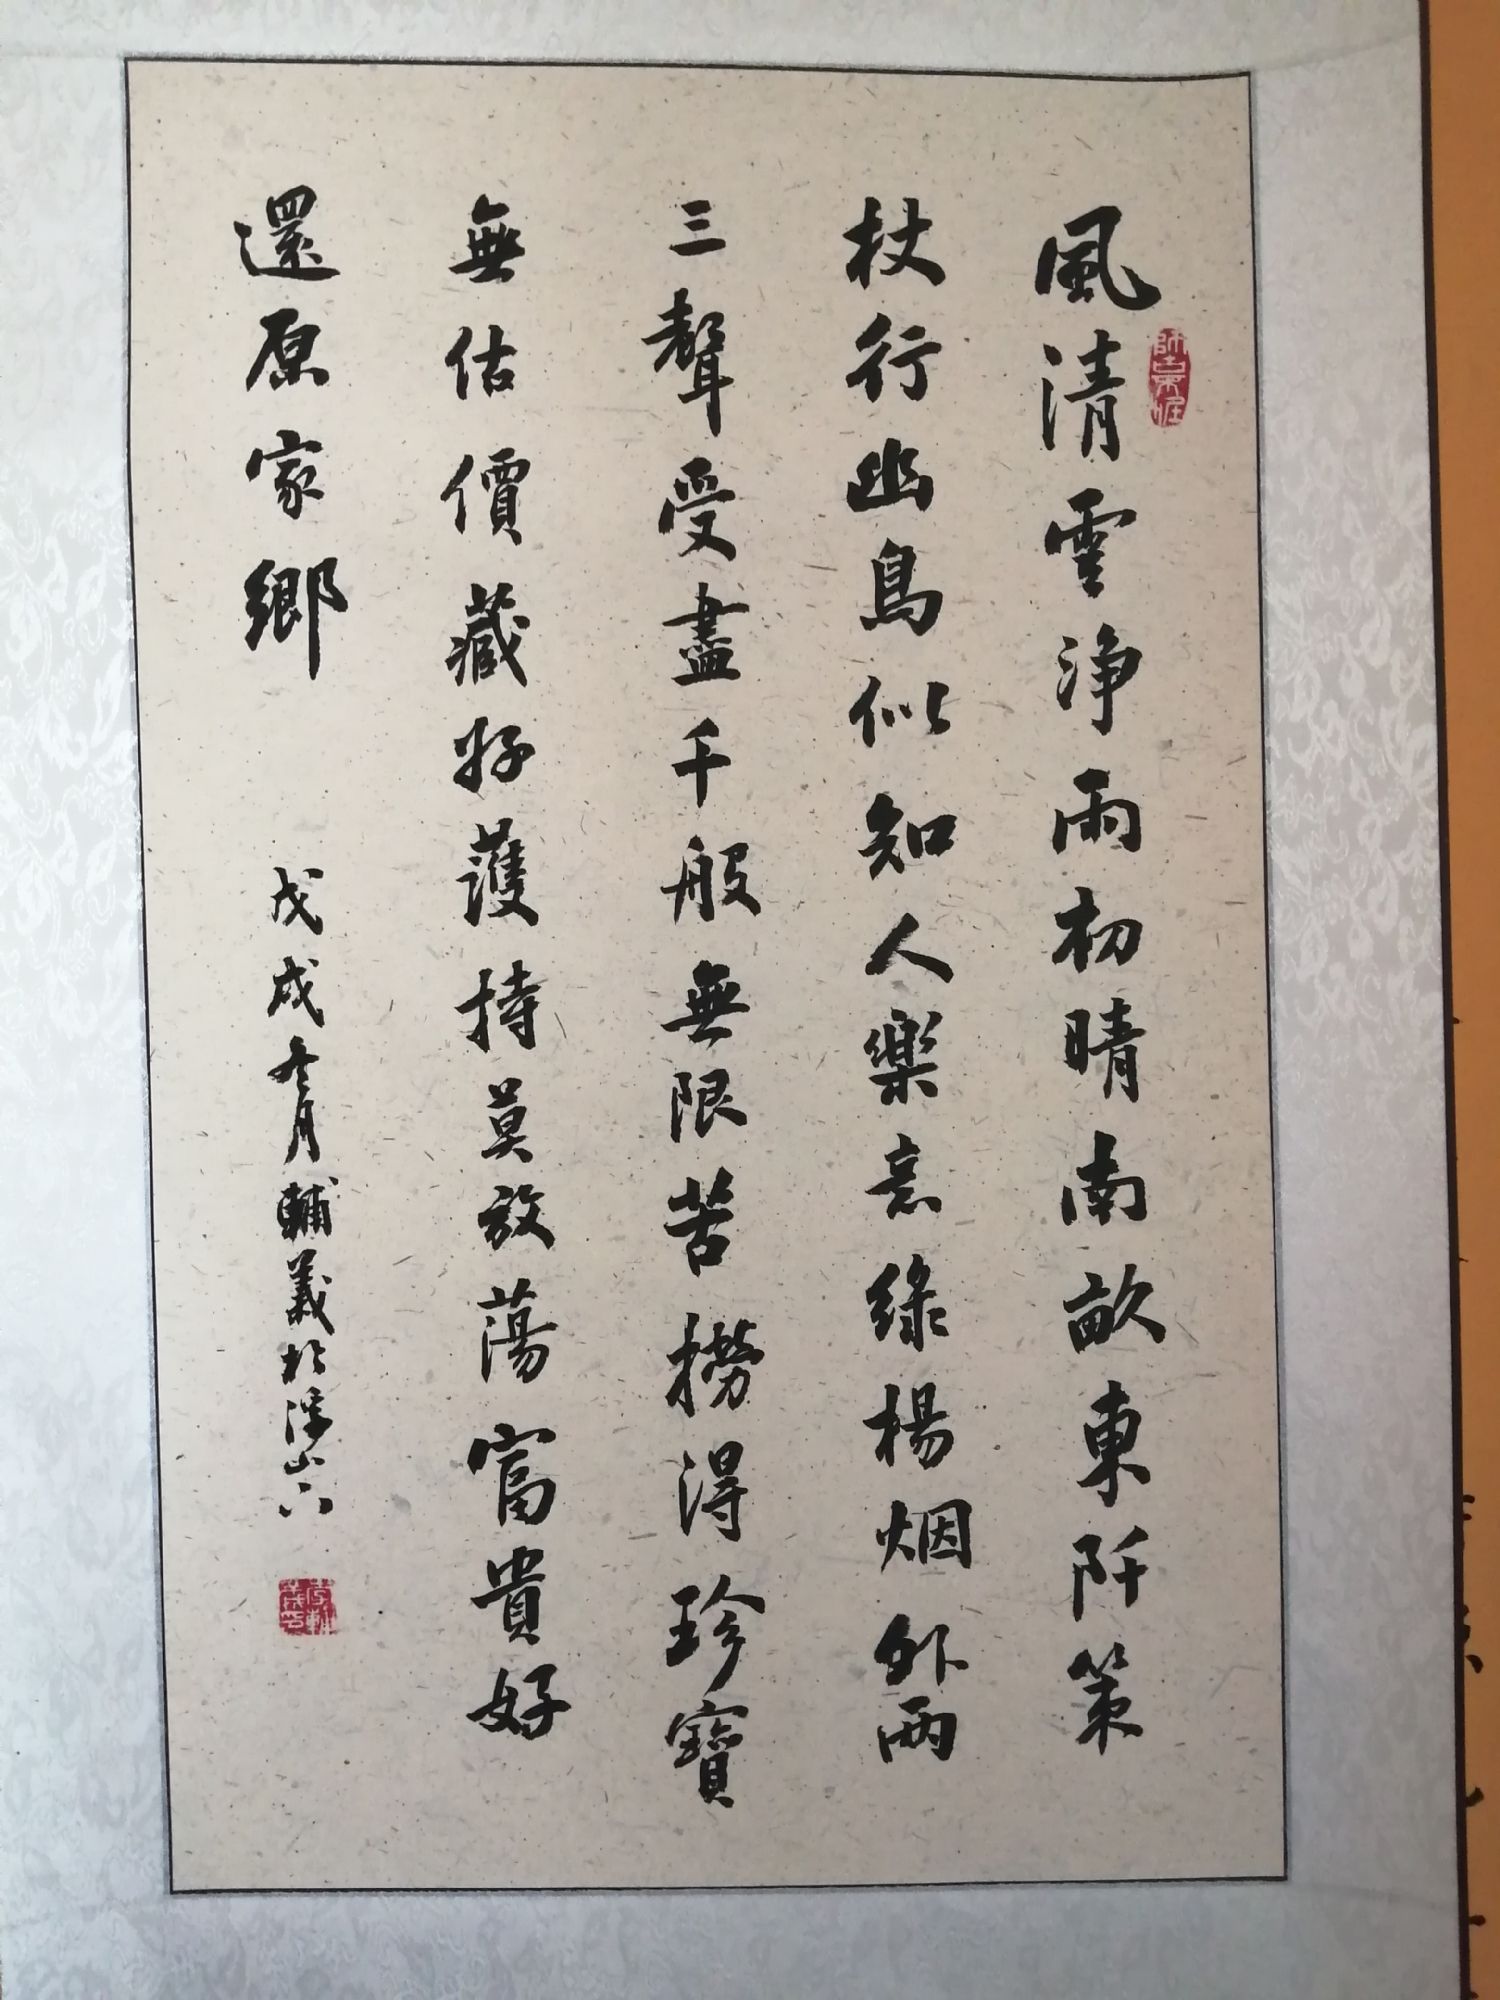 風清雲浄雨初晴南畝東阡策
杖行幽鳥似知人樂意綠楊烟外兩
三聲受盡千般無限苦撈得珍寶
無估價藏好護持莫放蕩富貴好
還原家鄉
戊戌冬月輔義於浮山下